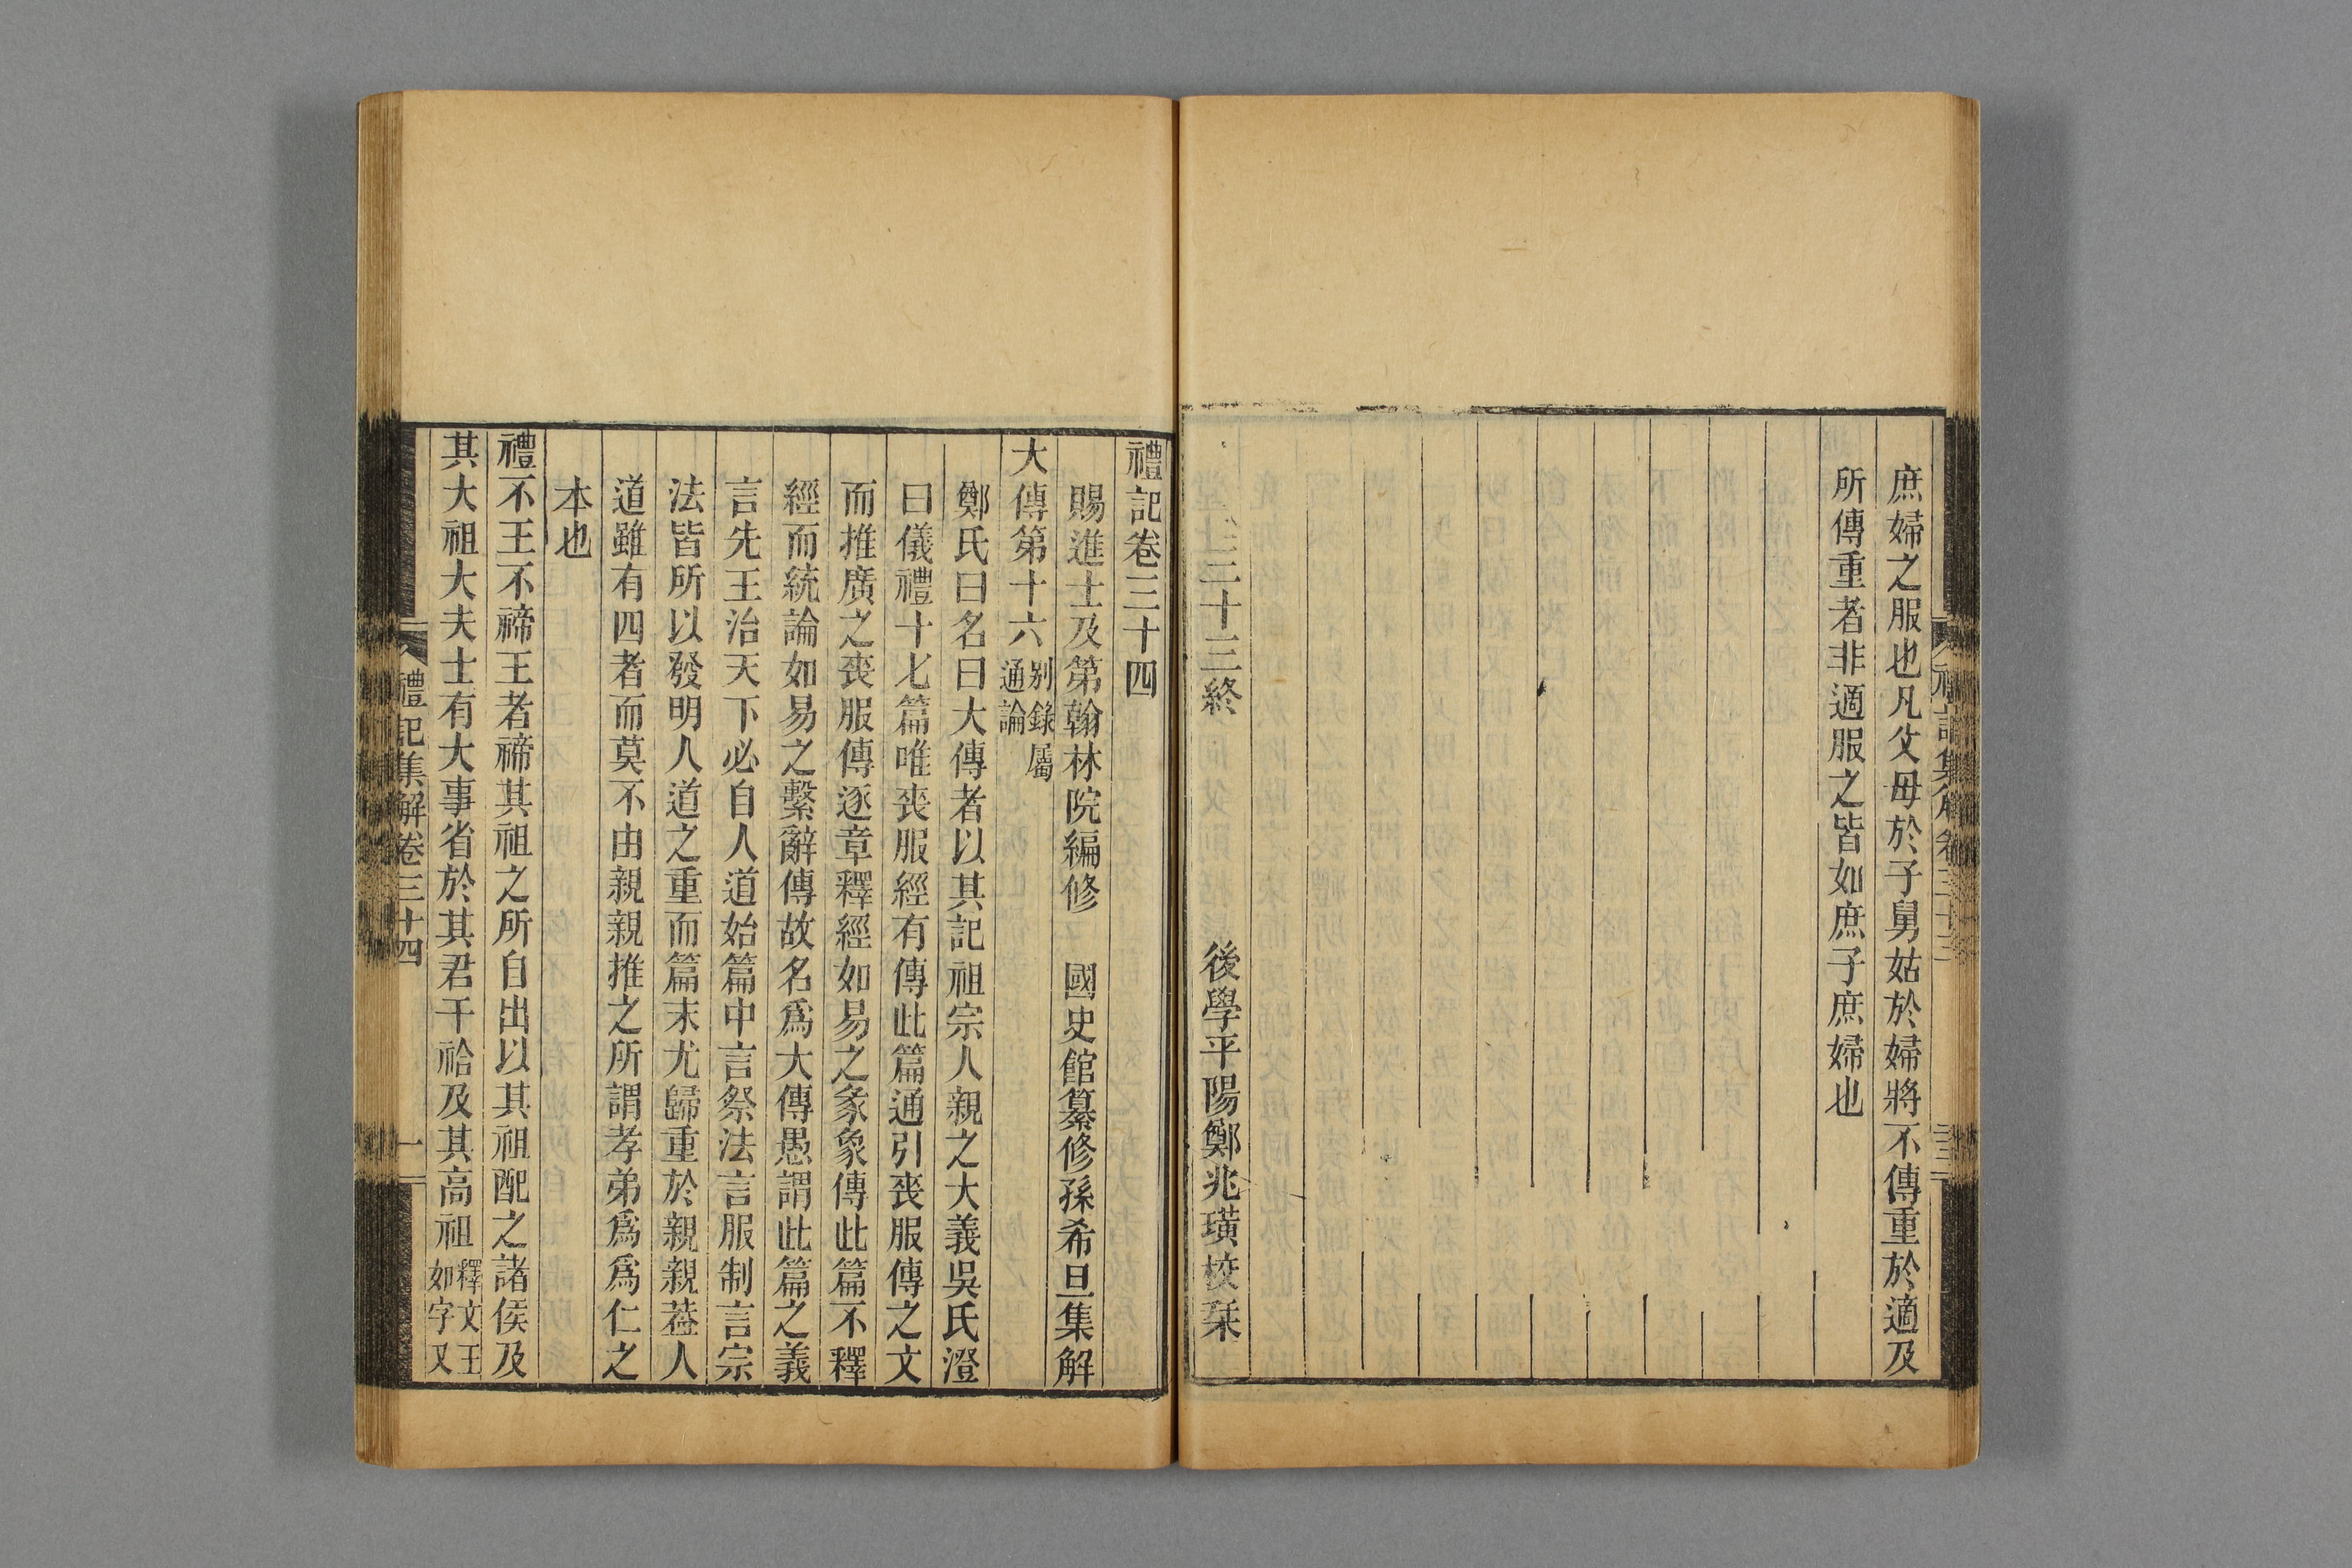 庶婦之服也凡父母於子舅姑於婦將不傳重於適及
所傳重者非適服之皆如庶子庶婦也
三十三終 後學平陽鄭兆璜校栞
禮記卷三十四
賜進士及第翰林院編修 國史館纂修孫希旦集解
大傳第十六別錄屬
通論
鄭氏曰名曰大傳者以其記祖宗人親之大義吳氏澄
曰儀禮十七篇唯喪服經有傳此篇通引喪服傳之文
而推廣之喪服傳逐章釋經如易之彖象傳此篇不釋
經而統論如易之繫辭傳故名爲大傳愚謂此篇之義
言先王治天下必自人道始篇中言祭法言服制言宗
法皆所以發明人道之重而篇末尤歸重於親親葢人
道雖有四者而莫不由親親推之所謂孝弟爲爲仁之
本也
禮不王不禘王者禘其祖之所自出以其祖配之諸侯及
其大祖大夫士有大事省於其君干祫及其高祖釋文王
如字又
禮記集解卷三十四 一